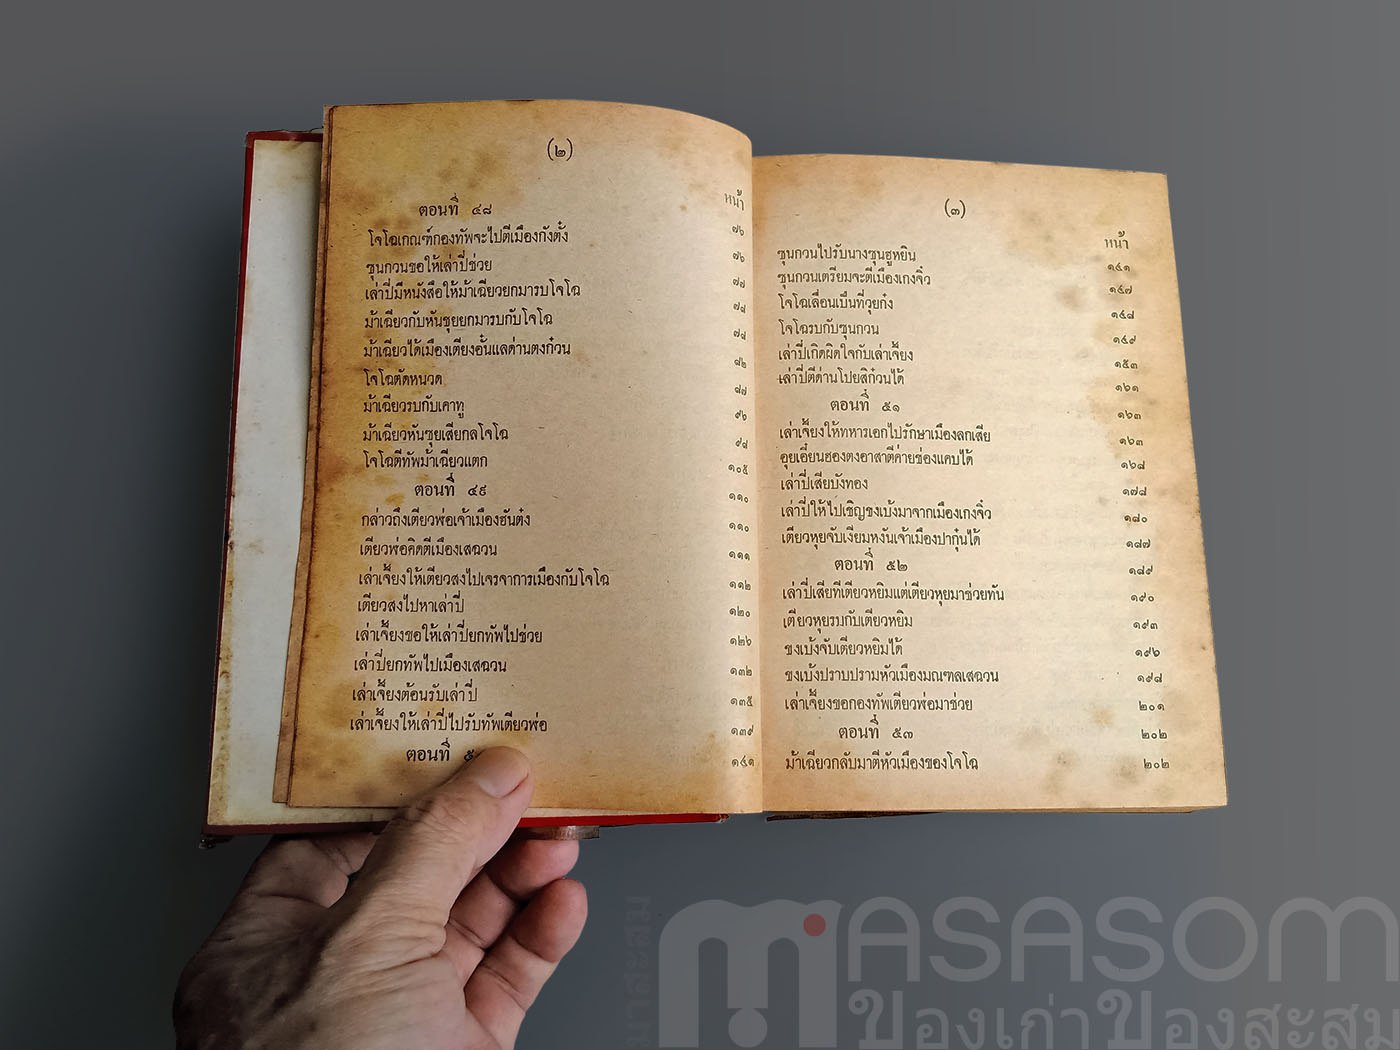 (๒)
หน้า
ตอนที่ ๔๘ ๗๖
โจโฉเกณฑ์กองทัพจะไปตีเมืองกังตั๋ง ๗๖
ซุนกวนขอให้เล่าปี่ช่วย ๗๗
เล่าปี่มีหนังสือให้ม้าเฉียวยกมารบโจโฉ ๗๘
ม้าเฉียวกับหันซุยยกมารบกับโจโฉ ๗๘
ม้าเฉียวได้เมืองเตียงอั๋นแลด่านตงก๋วน ๘๒
โจโฉตัดหนวด ๘๗
ม้าเฉียวรบกับเคาทู ๙๖
ม้าเฉียวหันซุยเสียกลโจโฉ ๙๘
โจโฉตีทัพม้าเฉียวแตก ๑๐๕
ตอนที่ ๔๙ ๑๑๐
กล่าวถึงเตียวฬ่อเจ้าเมืองฮันต๋ง ๑๑๐
เตียวฬ่อคิดตีเมืองเสฉวน ๑๑๑
เล่าเจี้ยงให้เตียวสงไปเจรจาการเมืองกับโจโฉ ๑๑๒
เตียวสงไปหาเล่าปี่ ๑๒๐
เล่าเจี้ยงขอให้เล่าปี่ยกทัพไปช่วย ๑๒๖
เล่าปี่ยกทัพไปเมืองเสฉวน ๑๓๒
เล่าเจี้ยงต้อนรับเล่าปี่ ๑๓๕
เล่าเจี้ยงให้เล่าปี่ไปรับทัพเตียวฬ่อ ๑๓๙
ตอนที่ ๑๔๑
(๓)
หน้า
ซุนกวนไปรับนางซุนฮูหยิน ๑๔๑
ซุนกวนเตรียมจะตีเมืองเกงจิ๋ว ๑๔๗
โจโฉเลื่อนเป็นที่วุยก๋ง ๑๔๘
โจโฉรบกับซุนกวน ๑๔๙
เล่าปี่เกิดผิดใจกับเล่าเจี้ยง ๑๕๓
เล่าปี่ตีด่านโปยสิก๋วนได้ ๑๖๑
ตอนที่ ๕๑ ๑๖๓
เล่าเจี้ยงให้ทหารเอกไปรักษาเมืองลกเสีย ๑๖๓
อุยเอี๋ยนฮองตงอาสาตีค่ายช่องแคบได้ ๑๖๘
เล่าปี่เสียบังทอง ๑๗๘
เล่าปี่ให้ไปเชิญขงเบ้งมาจากเมืองเกงจิ๋ว ๑๘๐
เตียวหุยจับเงียมหงันเจ้าเมืองปากุ๋นได้ ๑๘๗
ตอนที่ ๕๒ ๑๘๙
เล่าปี่เสียทีเตียวหยิมแต่เตียวหุยมาช่วยทัน ๑๙๐
เตียวหุยรบกับเตียวหยิม ๑๙๓
ขงเบ้งจับเตียวหยิมได้ ๑๙๖
ขงเบ้งปราบปรามหัวเมืองมณฑลเสฉวน ๑๙๘
เล่าเจี้ยงขอกองทัพเตียวฬ่อมาช่วย ๒๐๑
ตอนที่ ๕๓ ๒๐๒
ม้าเฉียวกลับมาตีหัวเมืองของโจโฉ ๒๐๒
มาสะสม
MASASOM
ของเก่าของสะสม